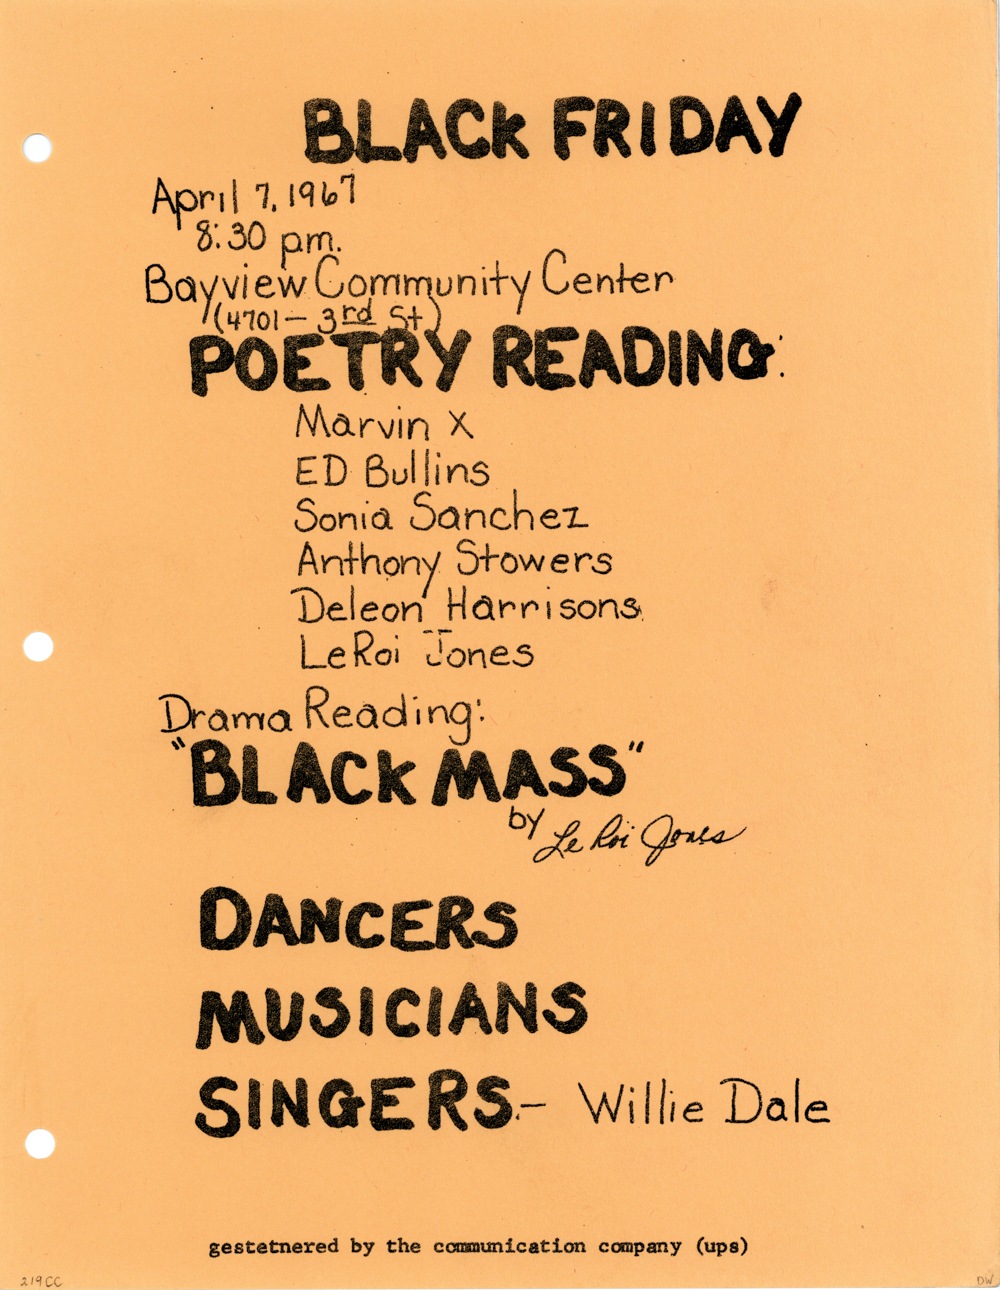 BLACK FRIDAY
April 7, 1967
8:30 pm.
Bayview Community Center
(4701 - 3rd St)
POETRY READING:
Marvin X
ED Bullins
Sonia Sanchez
Anthony Stowers
Deleon Harrisons
LeRoi Jones
Drama Reading:
"BLACK MASS"
by LeRoi Jones
DANCERS
MUSICIANS
SINGERS - Willie Dale
gestetnered by the communication company (ups)
219CC DW